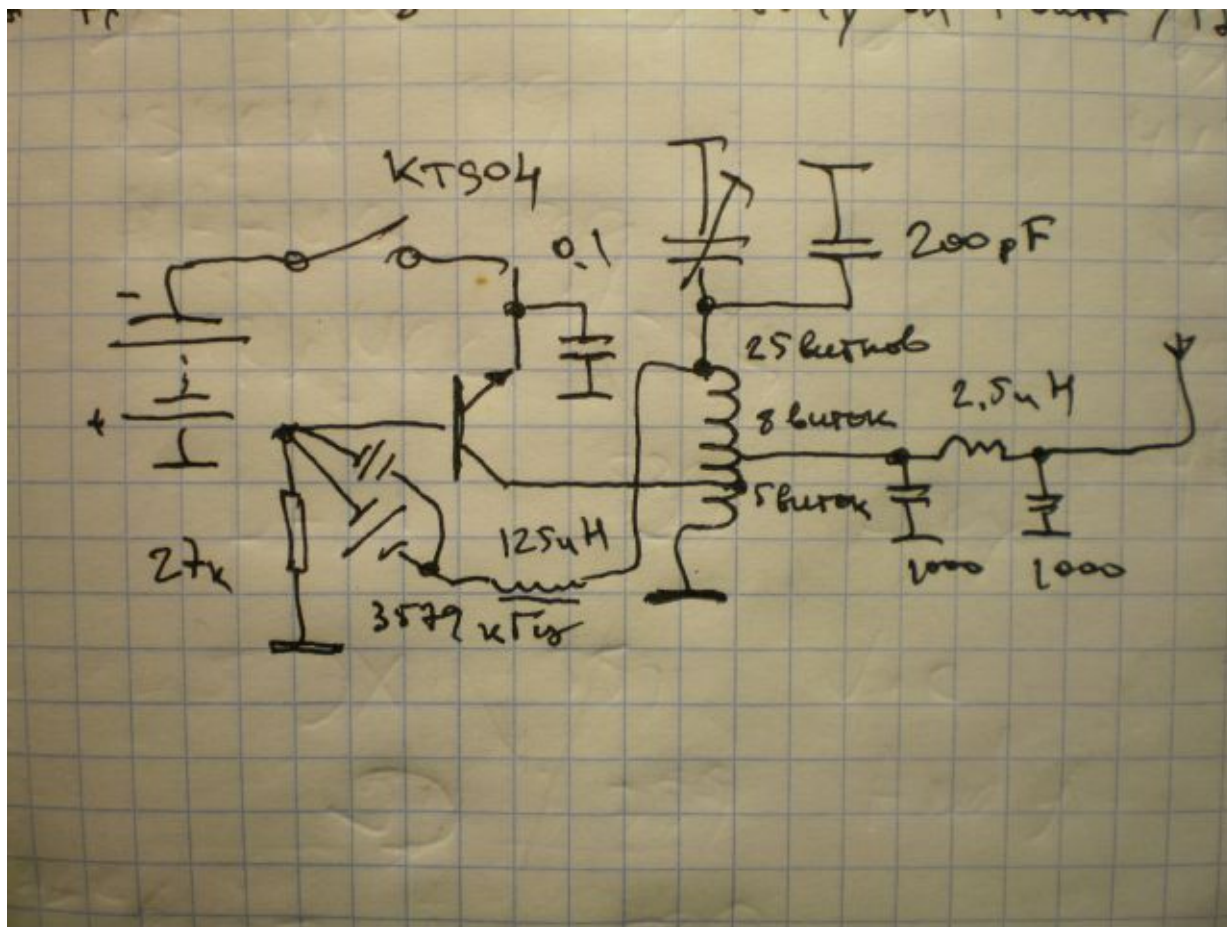 КТ904
0.1
200 pF
25 витков
8 виток
2.5uH
5 виток
125uH
27к
3579 кГц
1000
1000
-
+